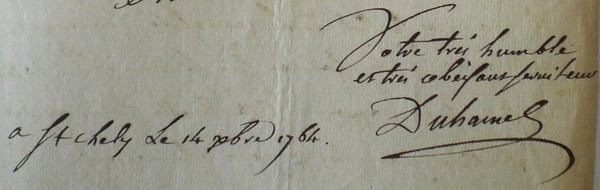 Votre très humble
et très obéissant serviteur
Duhamel
a St chely Le 14 xbre 1764.